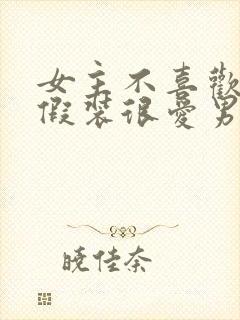 女主不喜歡
假裝很愛男
曉佳奈